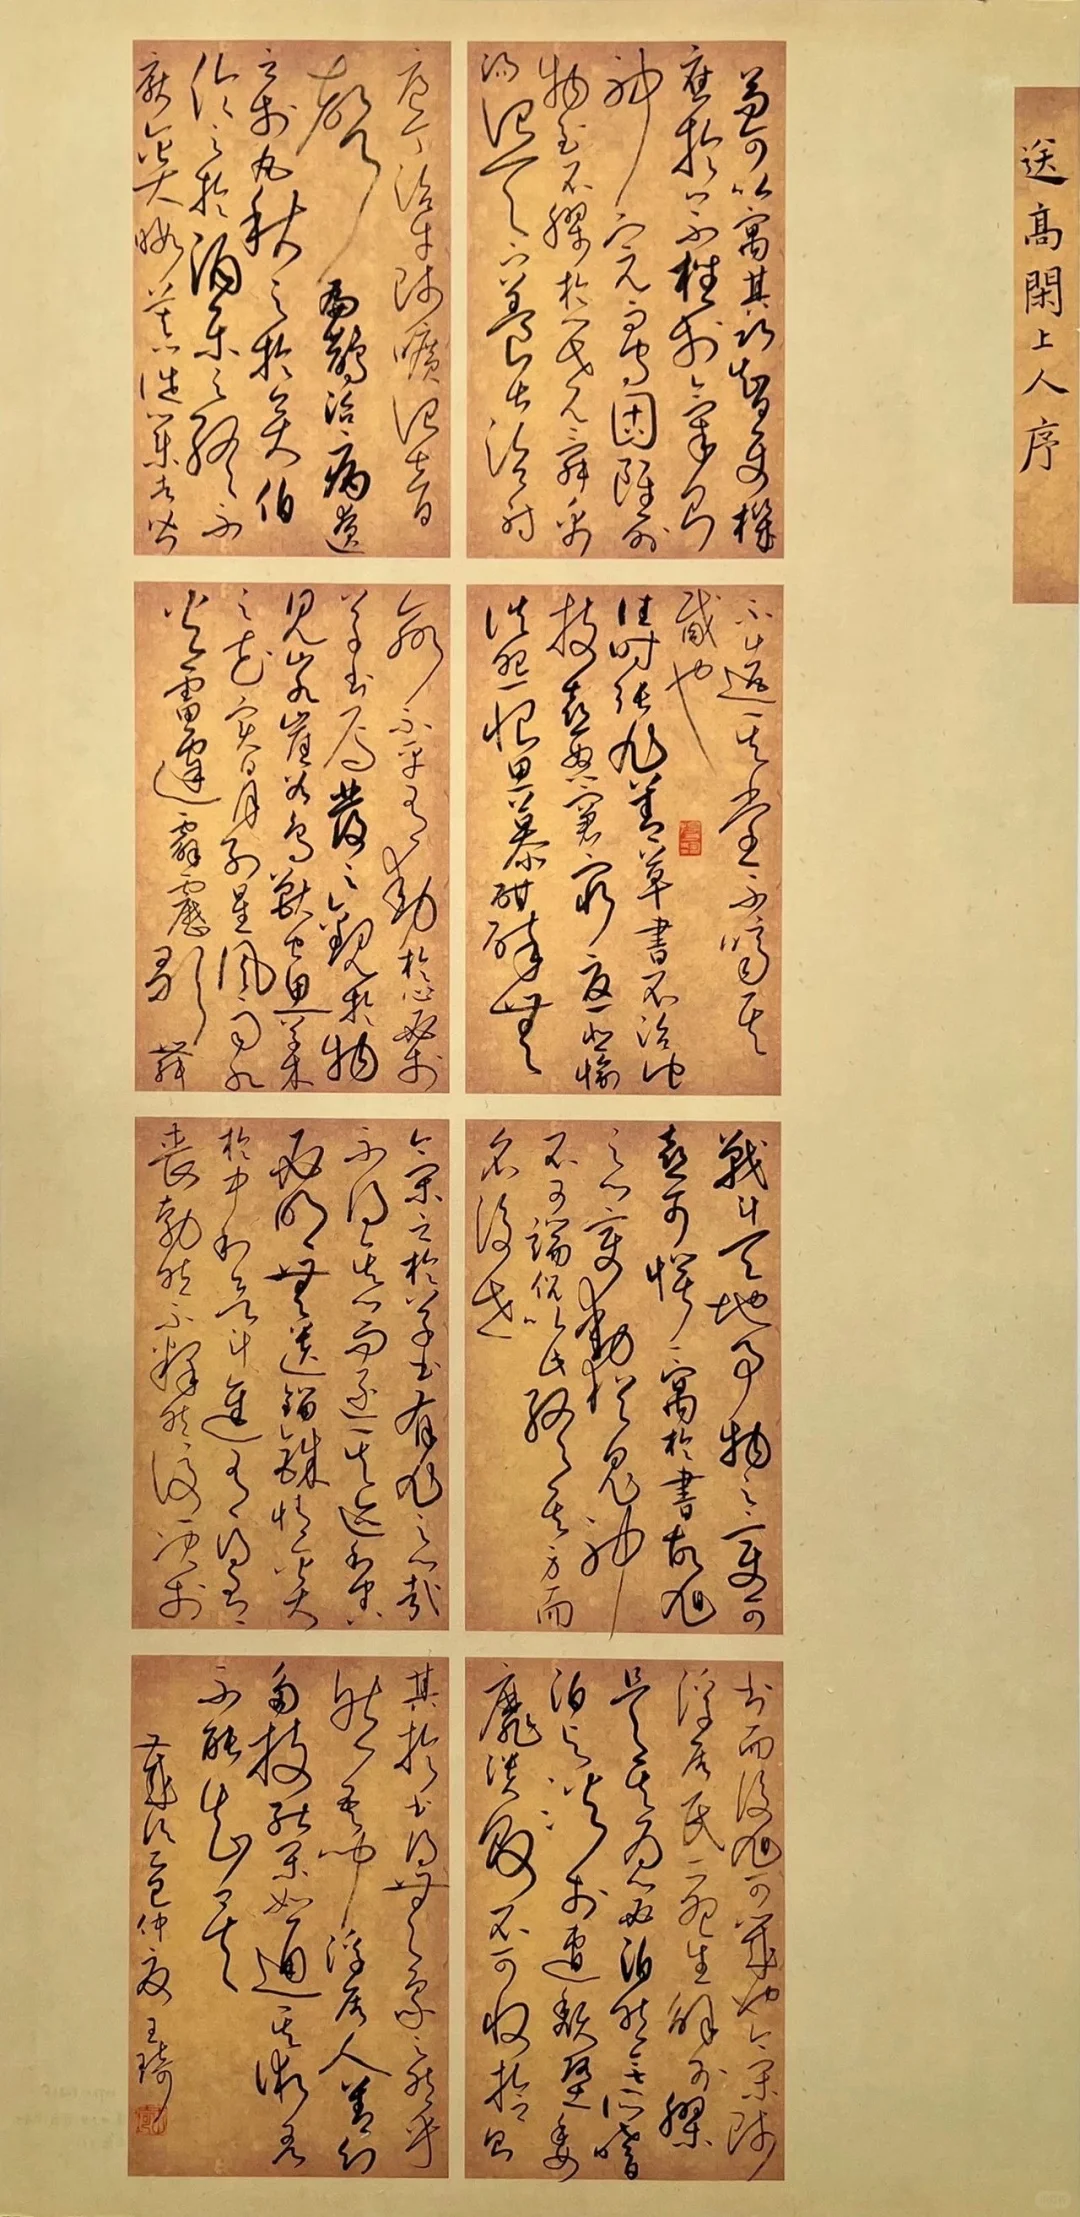 送高閑上人序
苟可以寓其巧智使機
應於心不挫於氣則
神完而守固雖外
物至不膠於心堯舜禹
湯治天下養叔治射
庖丁治牛師曠治音
聲扁鵲治病僚
之於丸秋之於奕伯
倫之於酒樂之終身不
厭奚暇慕徙業者皆
不造其堂不嚌其
胾也
往時張旭善草書不治他
技喜怒窘窮憂悲愉
佚怨恨思慕酣醉無
聊不平有動於心必於
草書焉發之觀於物
見山水崖谷鳥獸虫魚草木
之花實日月列星風雨水
火雷霆霹靂歌舞
戰鬥天地事物之變可
喜可愕一寓於書故旭
之心變動猶鬼神
不可端倪以此終其身而
名後世
今閑之於草書有旭之心哉
不得其心而逐其迹利害
必明無遺錙銖情炎
於中利欲鬥進有得有
喪勃然不釋然後決於
書而後旭可幾也今閑師
浮屠氏一死生解外膠
是其為心必泊然無所嗜
泊與淡相遭頹墮委
靡潰敗不可收拾則
其於書得無象之然乎
然吾聞浮屠人善幻
多技能閑如通其術吾
不能知矣
歲次乙巳仲夏王琦